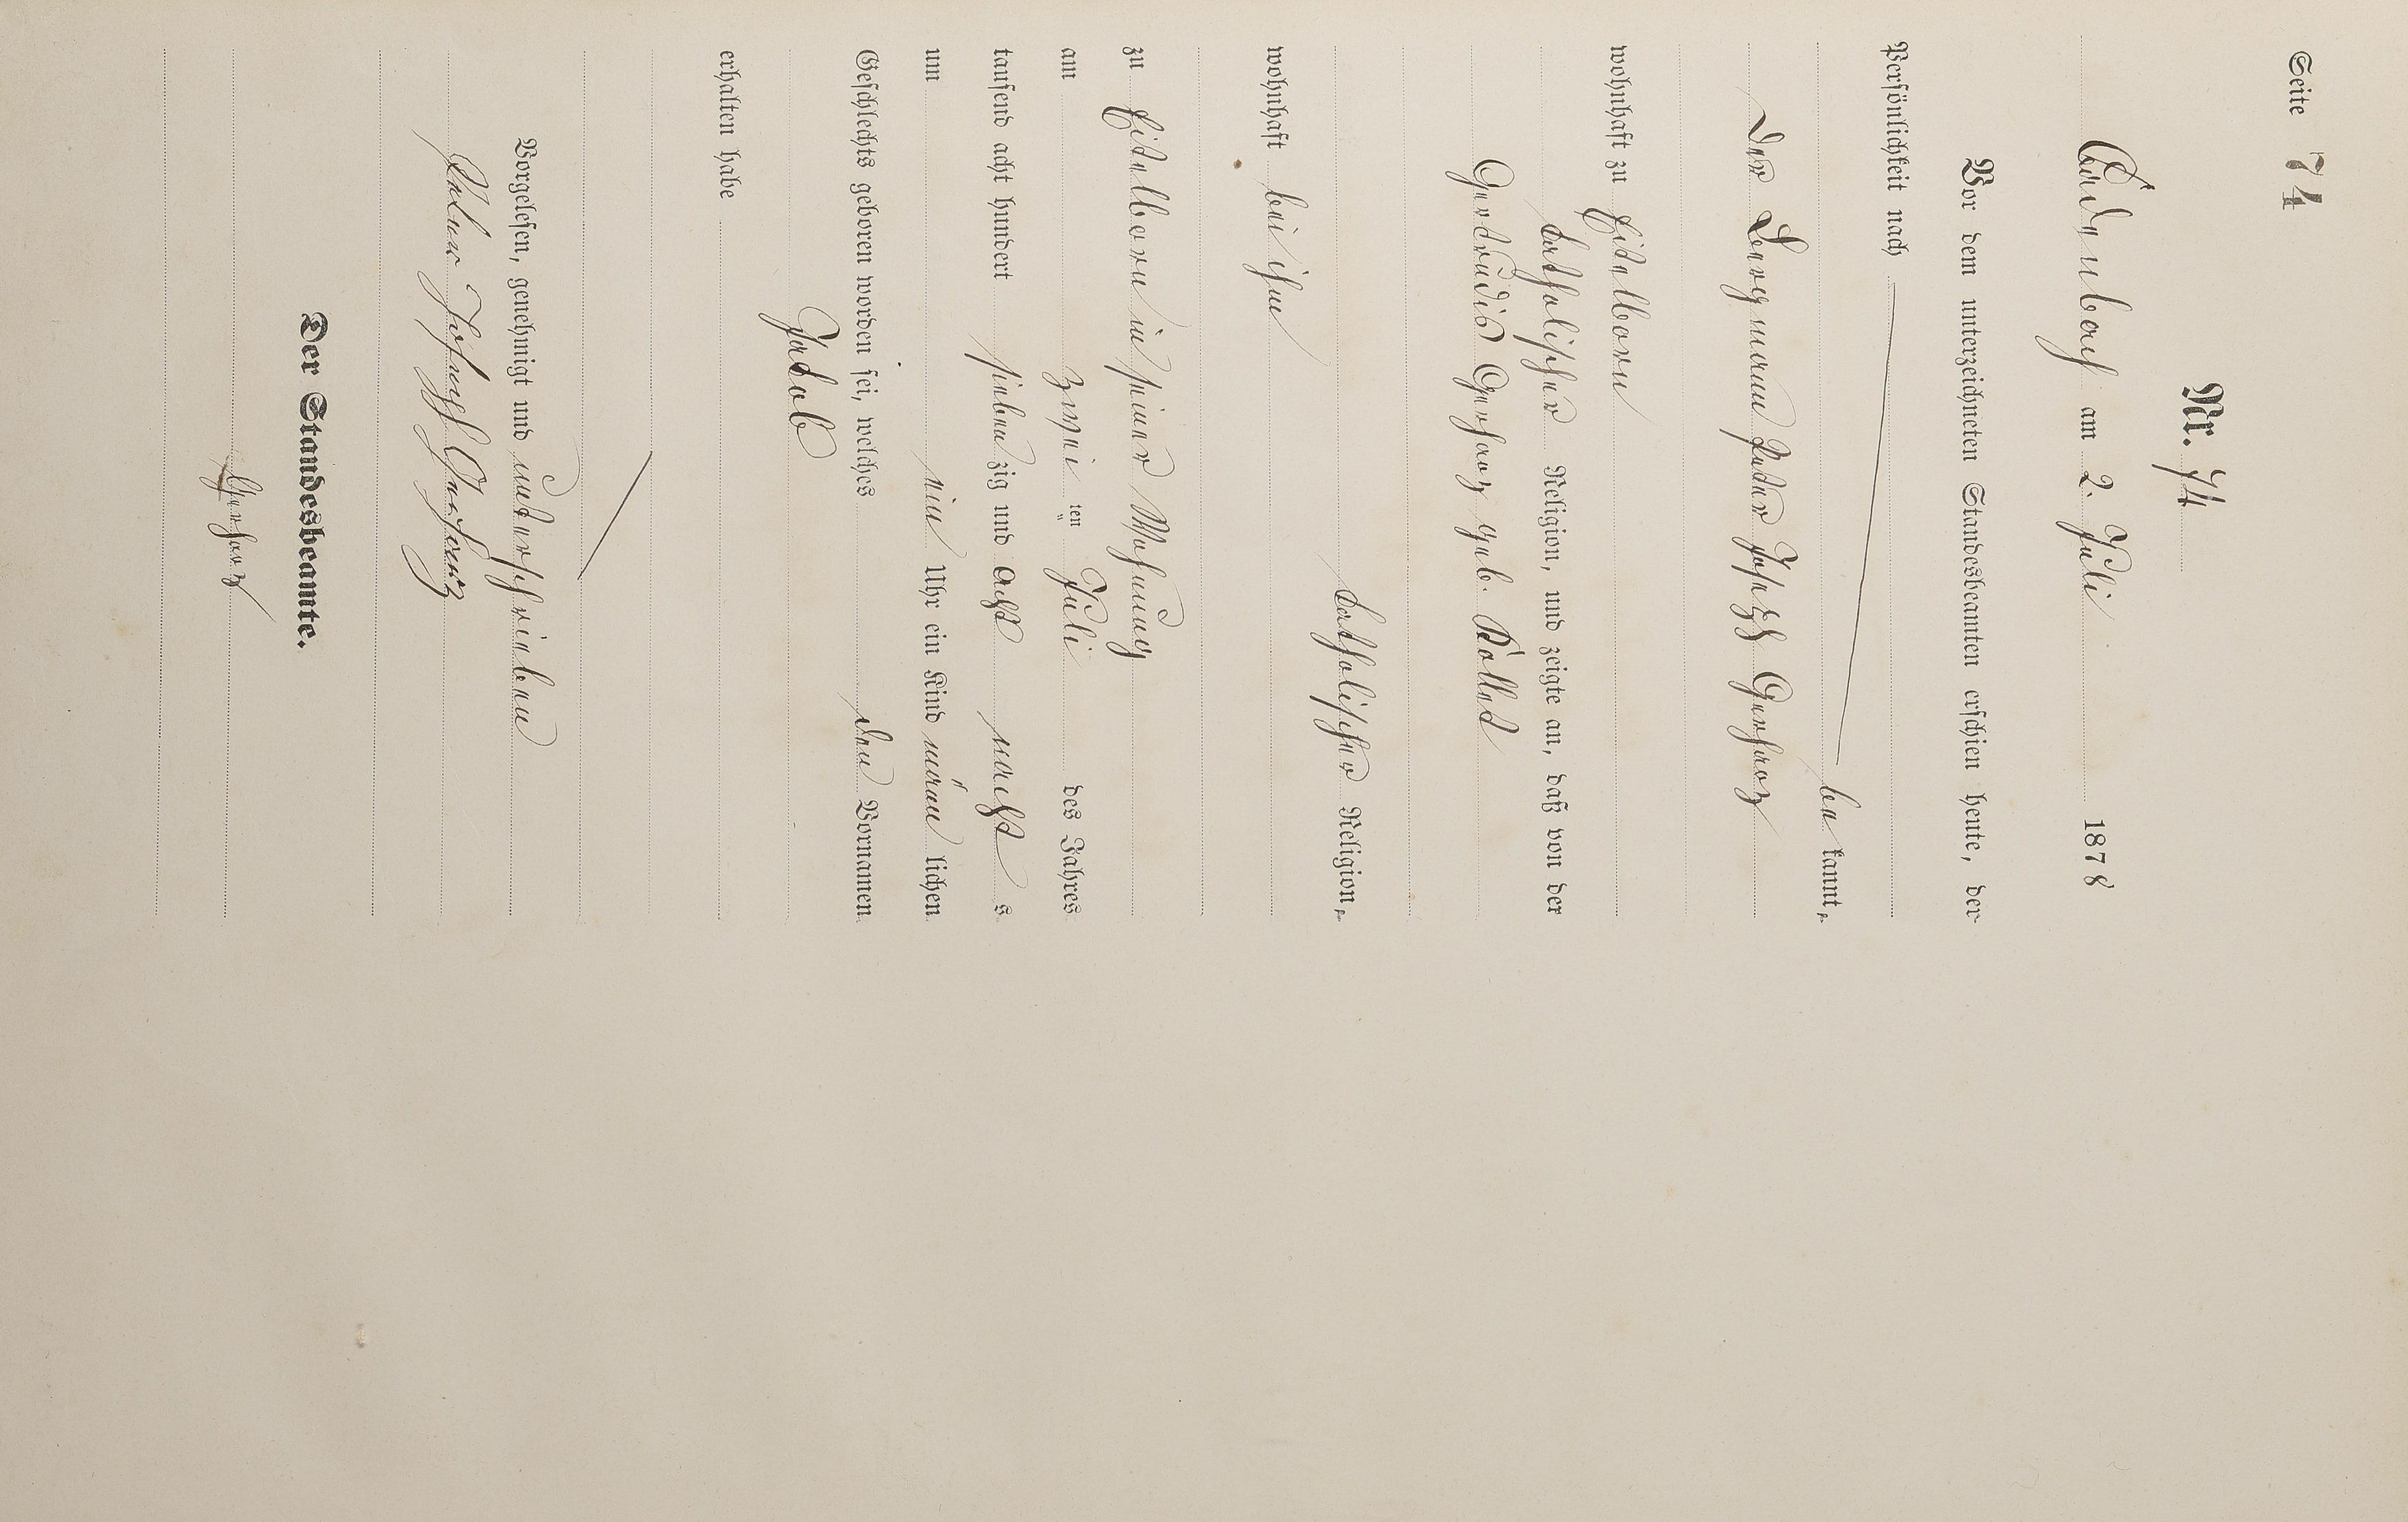 Seite 74
Nr. 74
Cadenbach am 2. Juli 1878
Vor dem unterzeichneten Standesbeamten erschien heute, der
Persönlichkeit nach
be kannt,
der Bergmann Peter Joseph Gerharz
wohnhaft zu Eitelborn
katholischer Religion, und zeigte an, daß von der
Gertrudis Gerharz geb. Kollet
katholischer Religion,
wohnhaft bei ihm
zu Eitelborn in seiner Wohnung
am zwei ten Juli des Jahres
tausend acht hundert sieben zig und acht nacht s
um ein Uhr ein Kind männ lichen
Geschlechts geboren worden sei, welches den Vornamen
Jakob
erhalten habe
Vorgelesen, genehmigt und unterschrieben
Peter Joseph Gerharz
Der Standesbeamte.
Gerharz